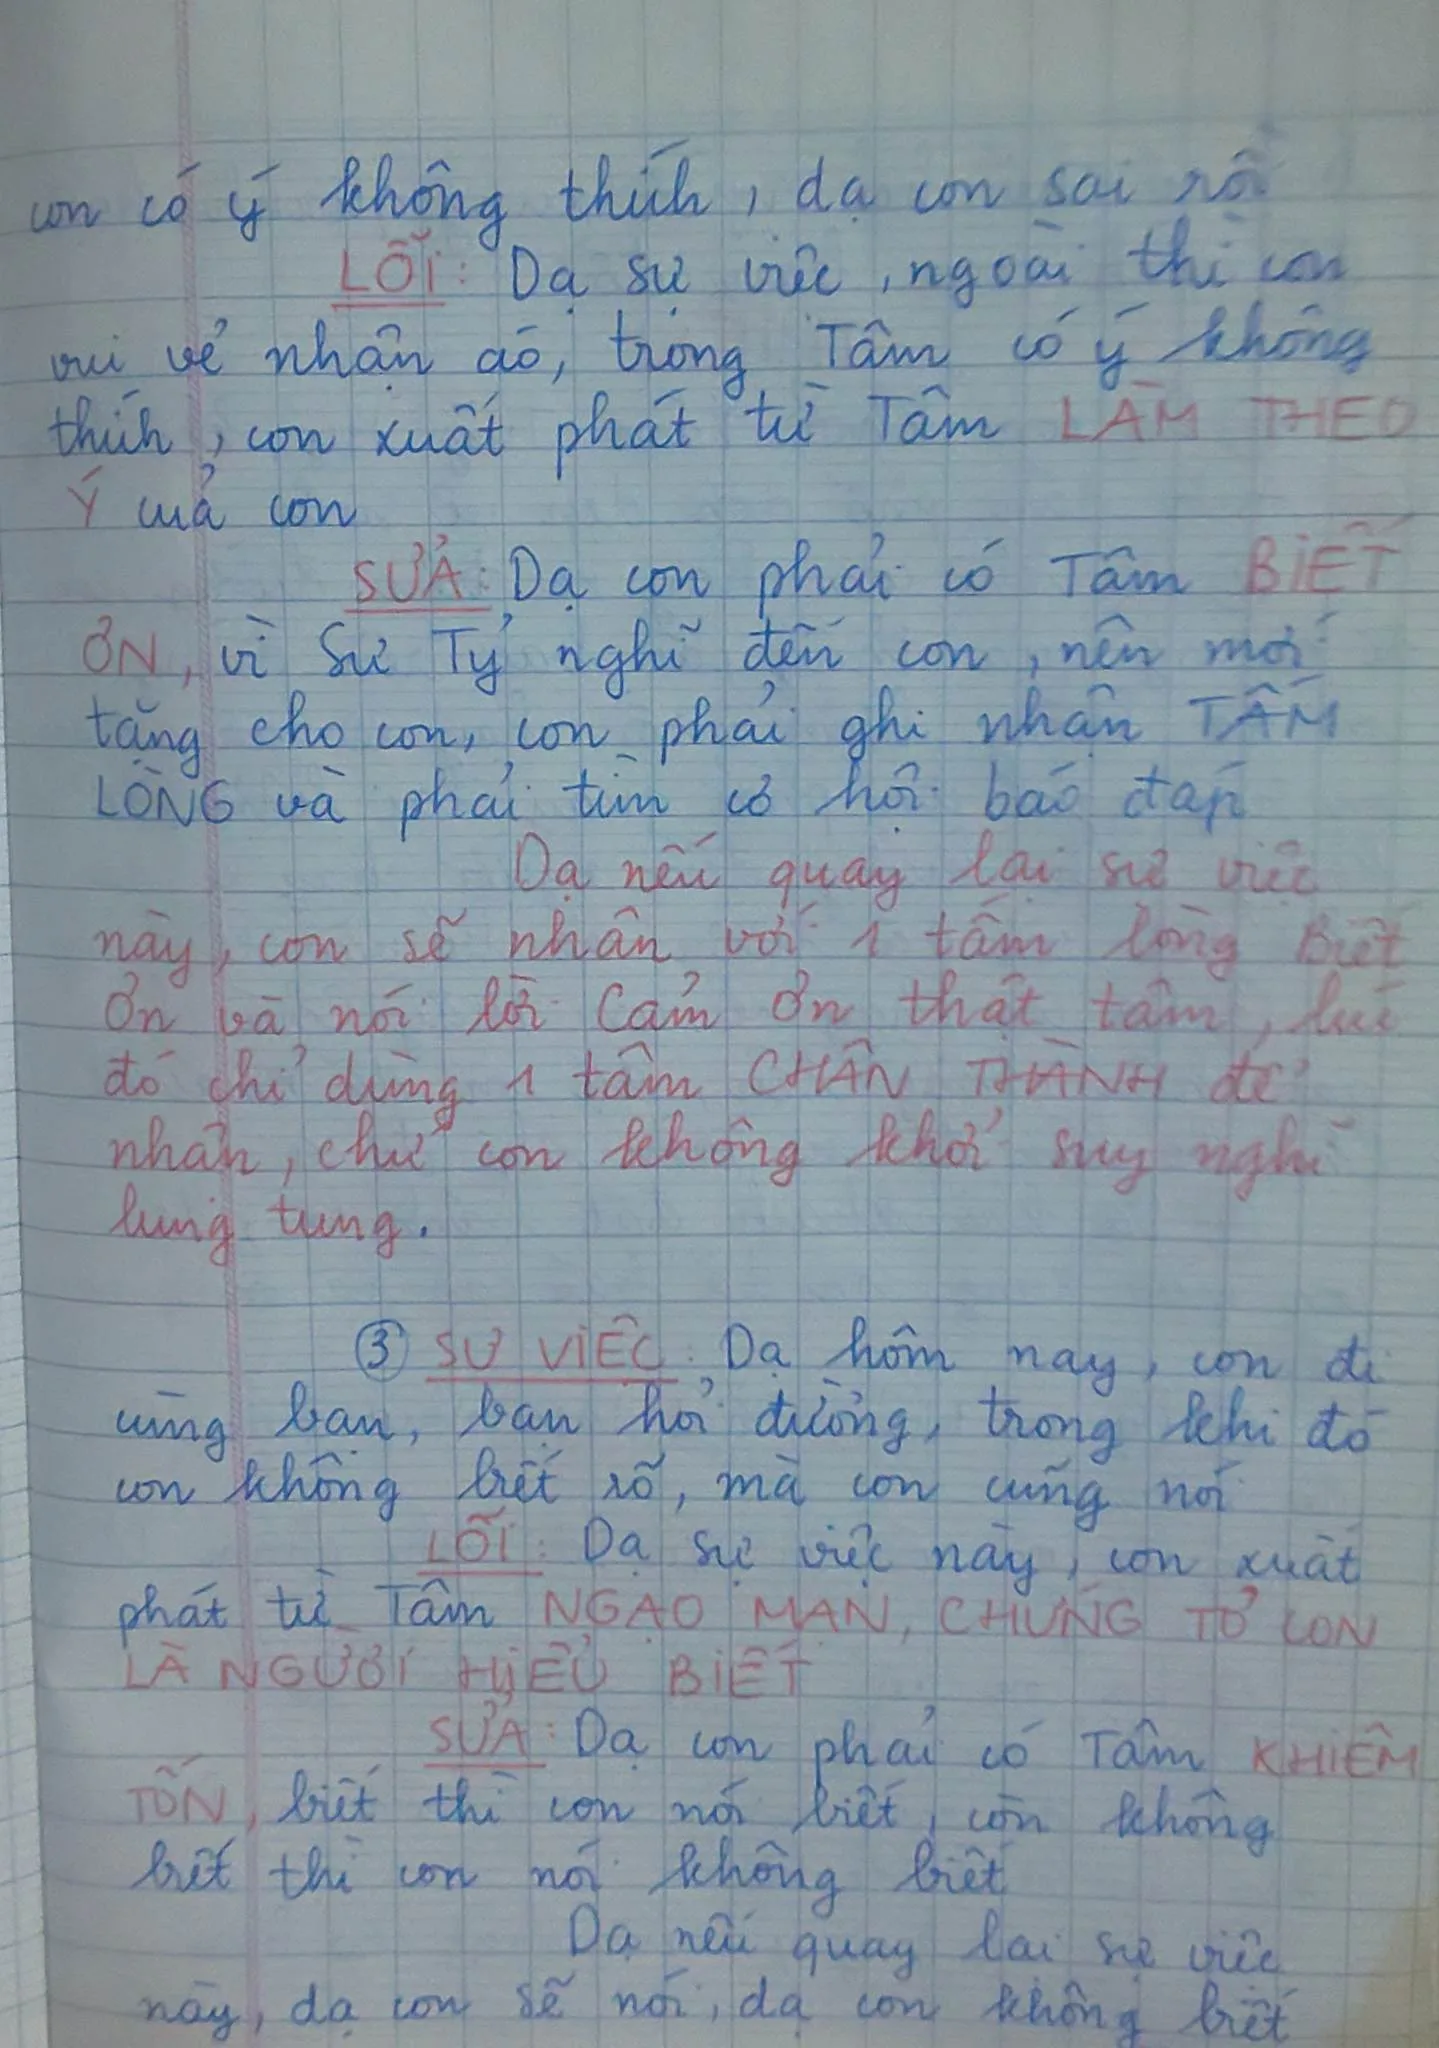 con có ý không thích, dạ con sai rồi
LỖI: Dạ sự việc, ngoài thì con
vui vẻ nhận áo, trong Tâm có ý không
thích, con xuất phát từ Tâm LÀM THEO
Ý của con
SỬA: Dạ con phải có Tâm BIẾT
ƠN, vì Sư Tỷ nghĩ đến con, nên mới
tặng cho con, con phải ghi nhận TẤM
LÒNG và phải tìm cơ hội báo đáp
Dạ nếu quay lại sự việc
này, con sẽ nhận với 1 tấm lòng Biết
Ơn và nói lời Cảm Ơn thật tâm, lúc
đó chỉ dùng 1 tâm CHÂN THÀNH để
nhận, chứ con không khởi suy nghĩ
lung tung.
③ SỰ VIỆC: Dạ hôm nay, con đi
cùng bạn, bạn hỏi đường, trong khi đó
con không biết rõ, mà con cũng nói
LỖI: Dạ sự việc này, con xuất
phát từ Tâm NGẠO MẠN, CHỨNG TỎ CON
LÀ NGƯỜI HIỂU BIẾT
SỬA: Dạ con phải có Tâm KHIÊM
TỐN, biết thì con nói biết, còn không
biết thì con nói không biết
Dạ nếu quay lại sự việc
này, dạ con sẽ nói, dạ con không biết